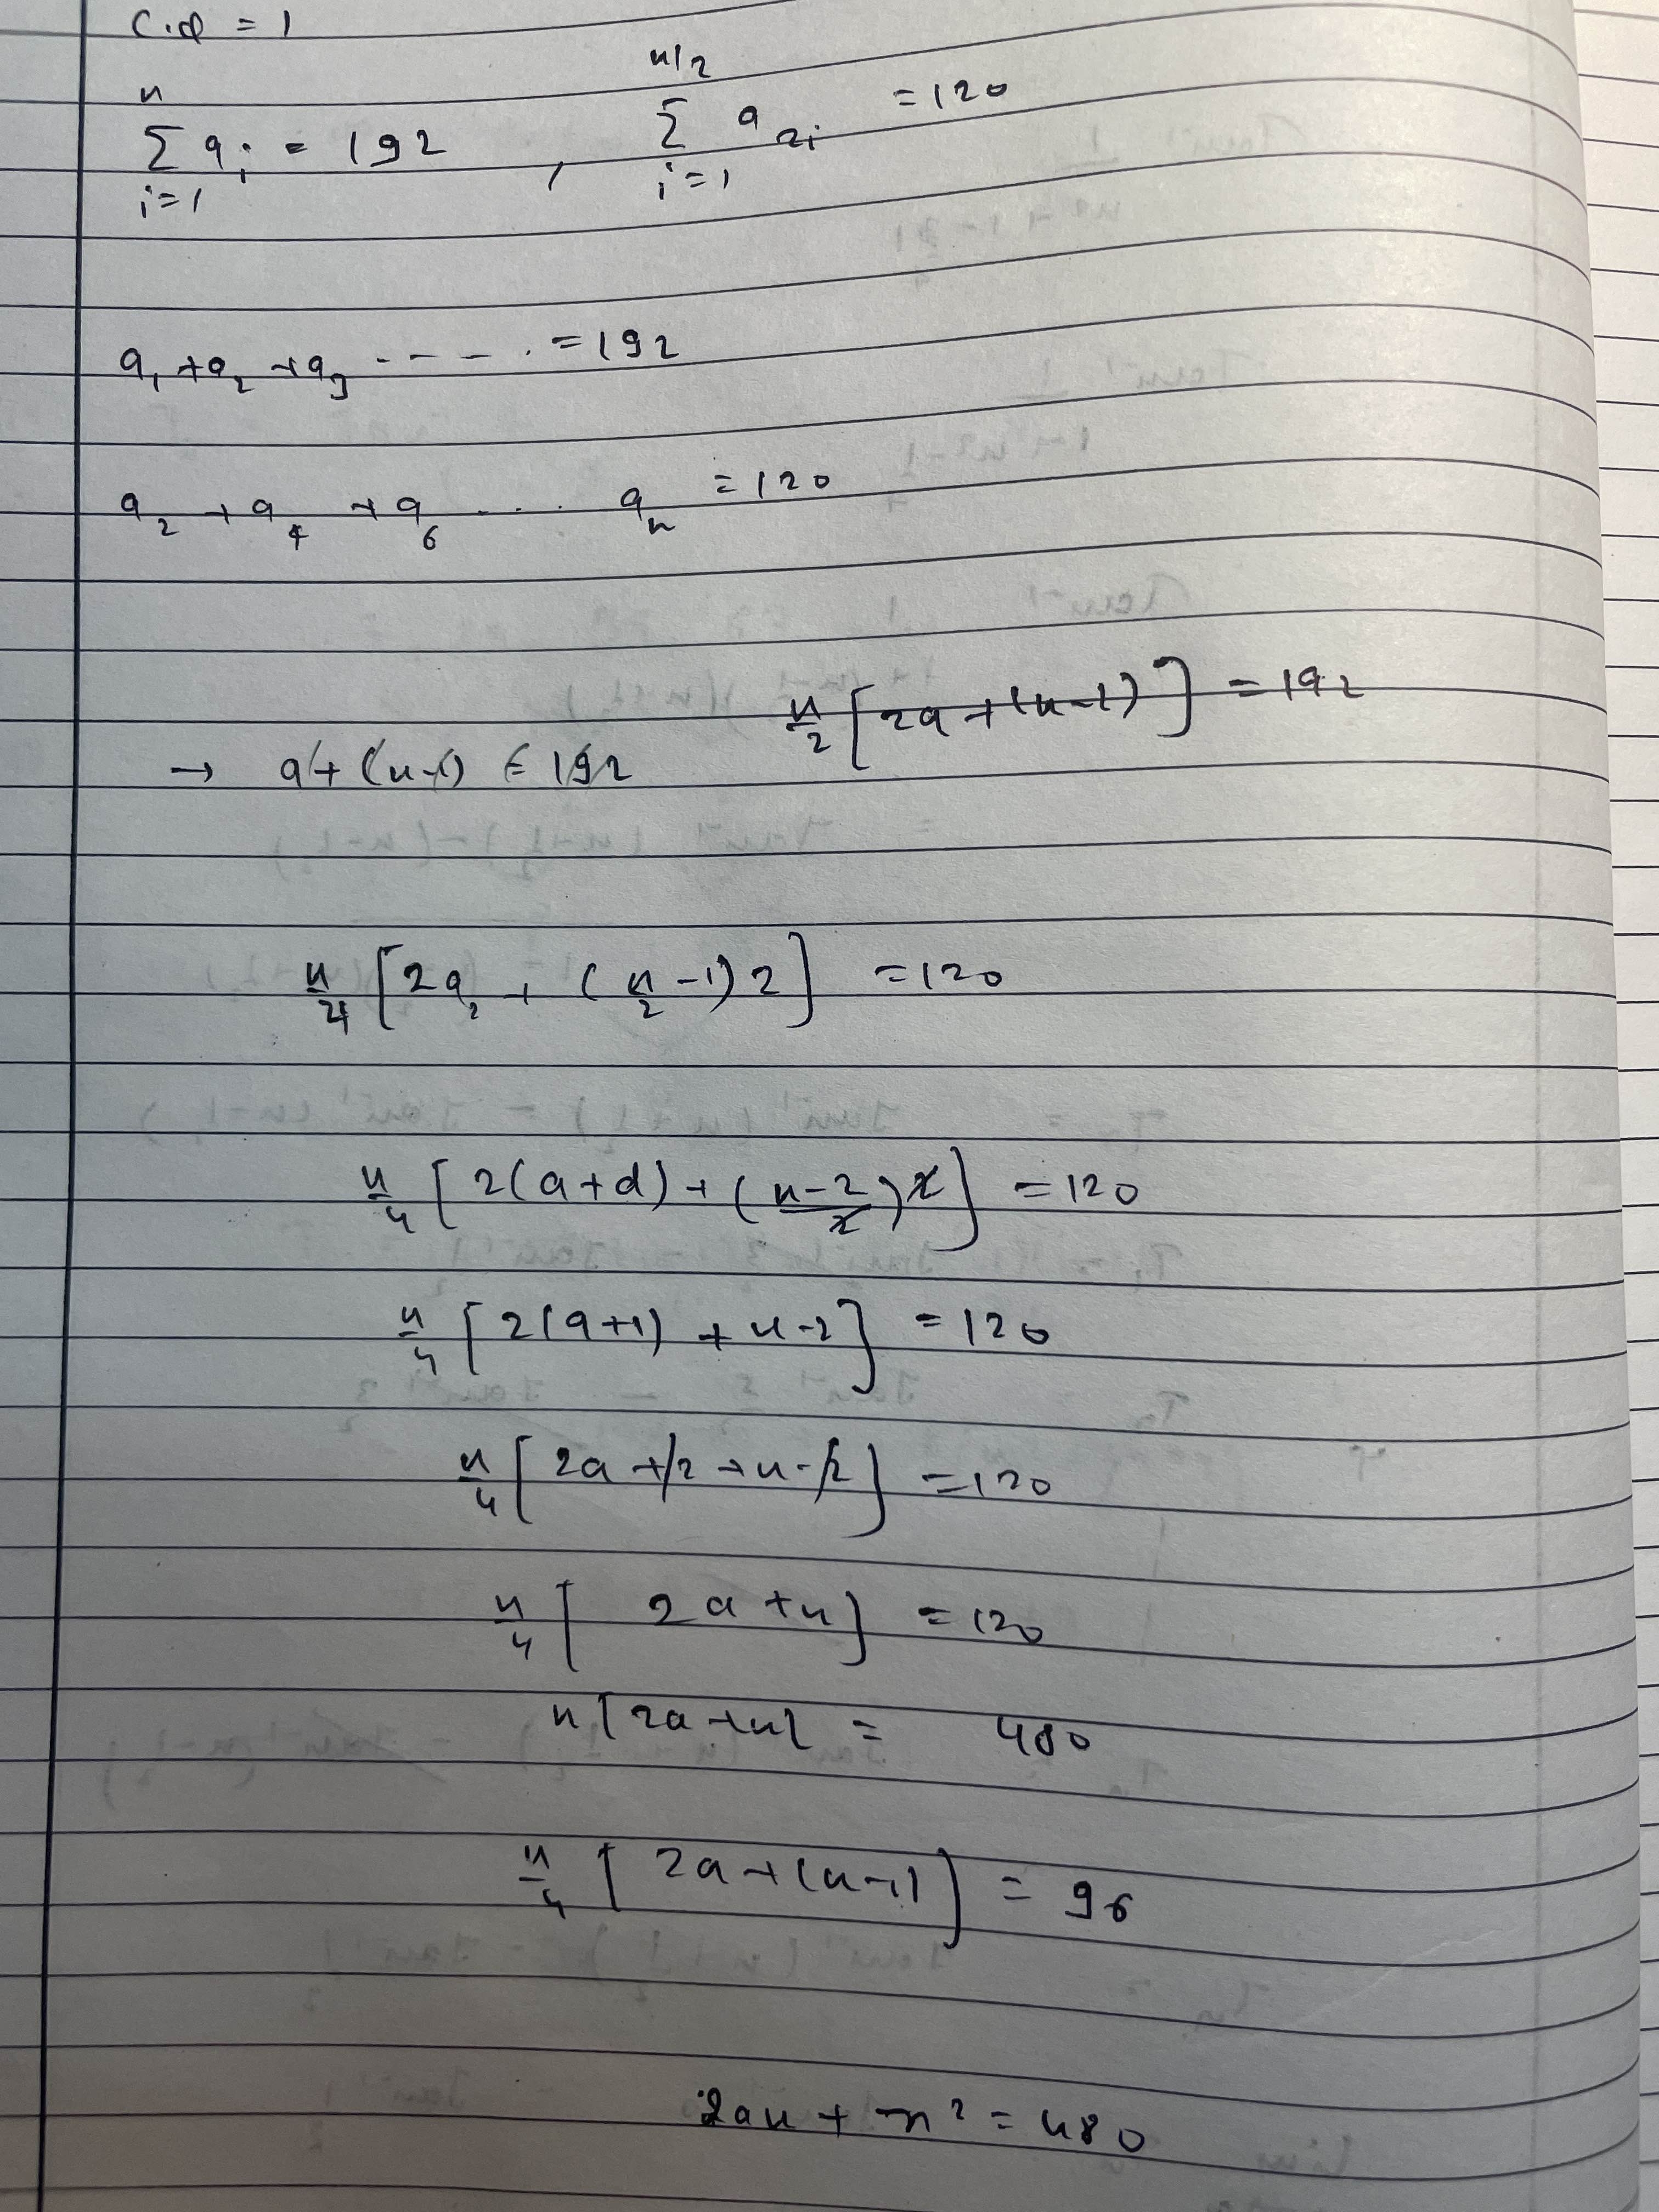 C.d = 1
n
Σ a i = 192 ,
i=1
n/2
Σ a 2i = 120
i=1
a1 + a2 + a3 - - - - . = 192
a2 + a4 + a6 . . . . an = 120
n/2 [2a + (n-1)] = 192
→ a + (n-1) = 192
n/4 [2a2 + (n/2 - 1) 2] = 120
n/4 [2(a+d) + (n-2/2) 2] = 120
n/4 [2(a+1) + n-2] = 120
n/4 [2a + 2 + n - 2] = 120
n/4 [2a + n] = 120
n[2a+n] = 480
n/4 [2a + (n-1)] = 96
2an + n² = 480